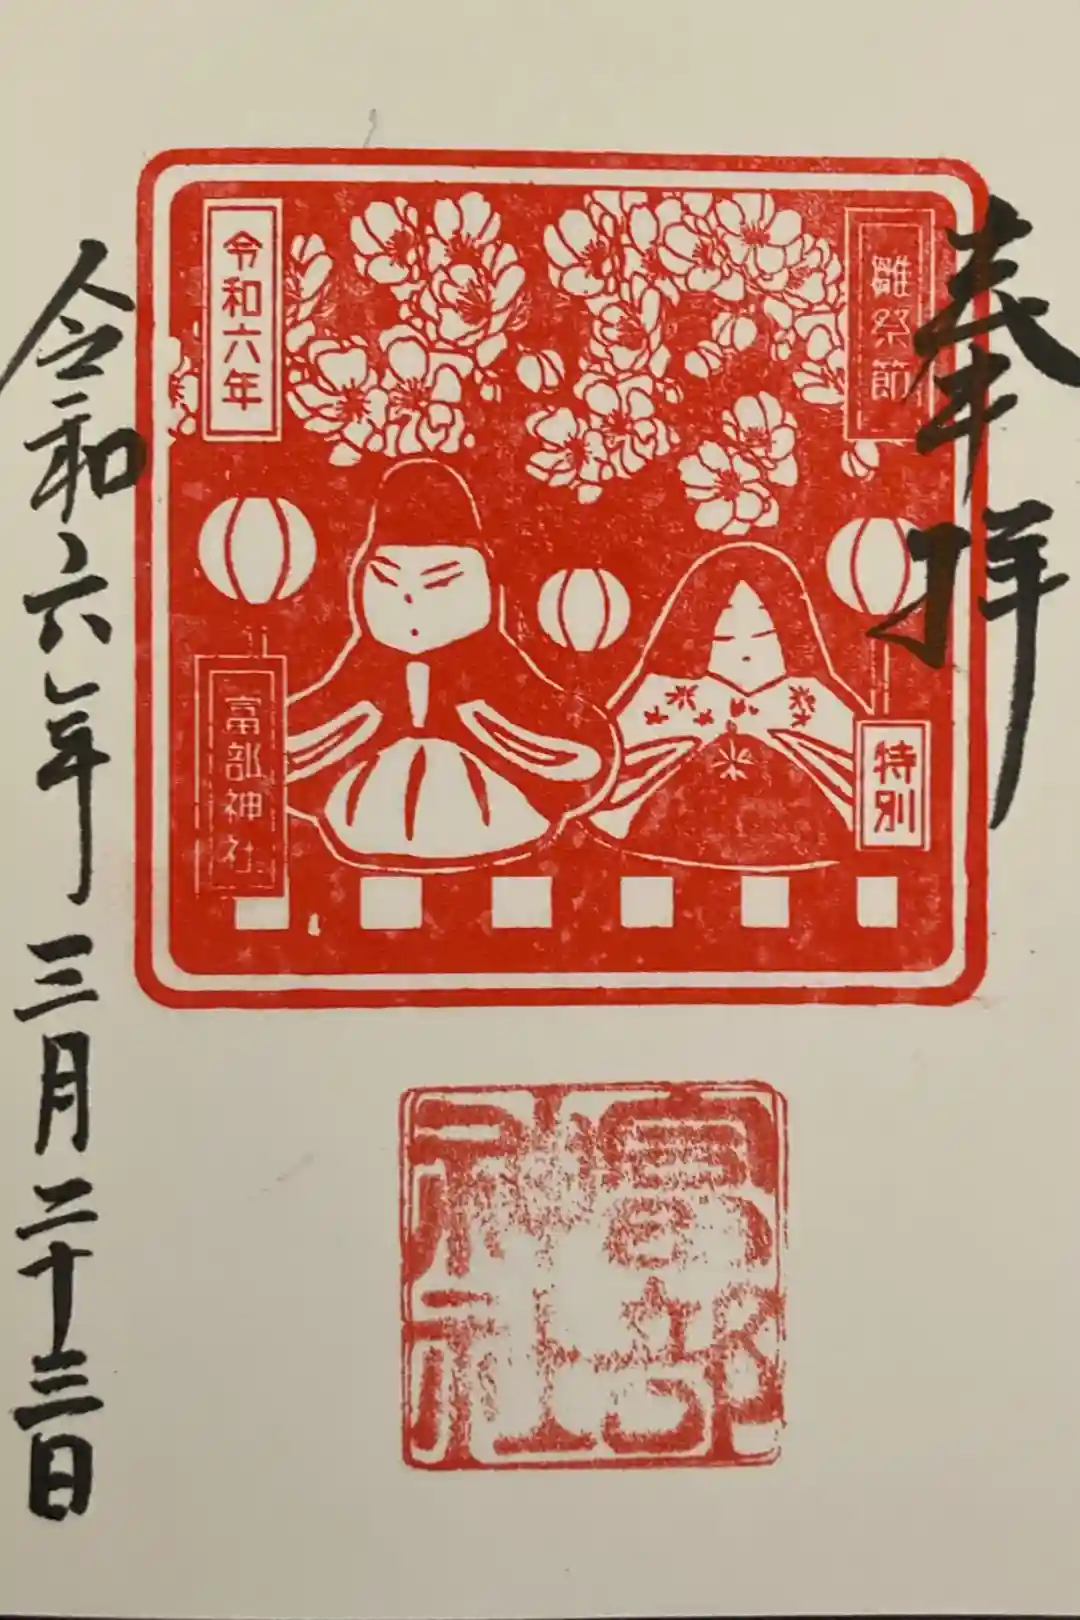 奉拝
雛祭節
特別
令和六年
富部神社
富部神社
令和六年三月二十三日